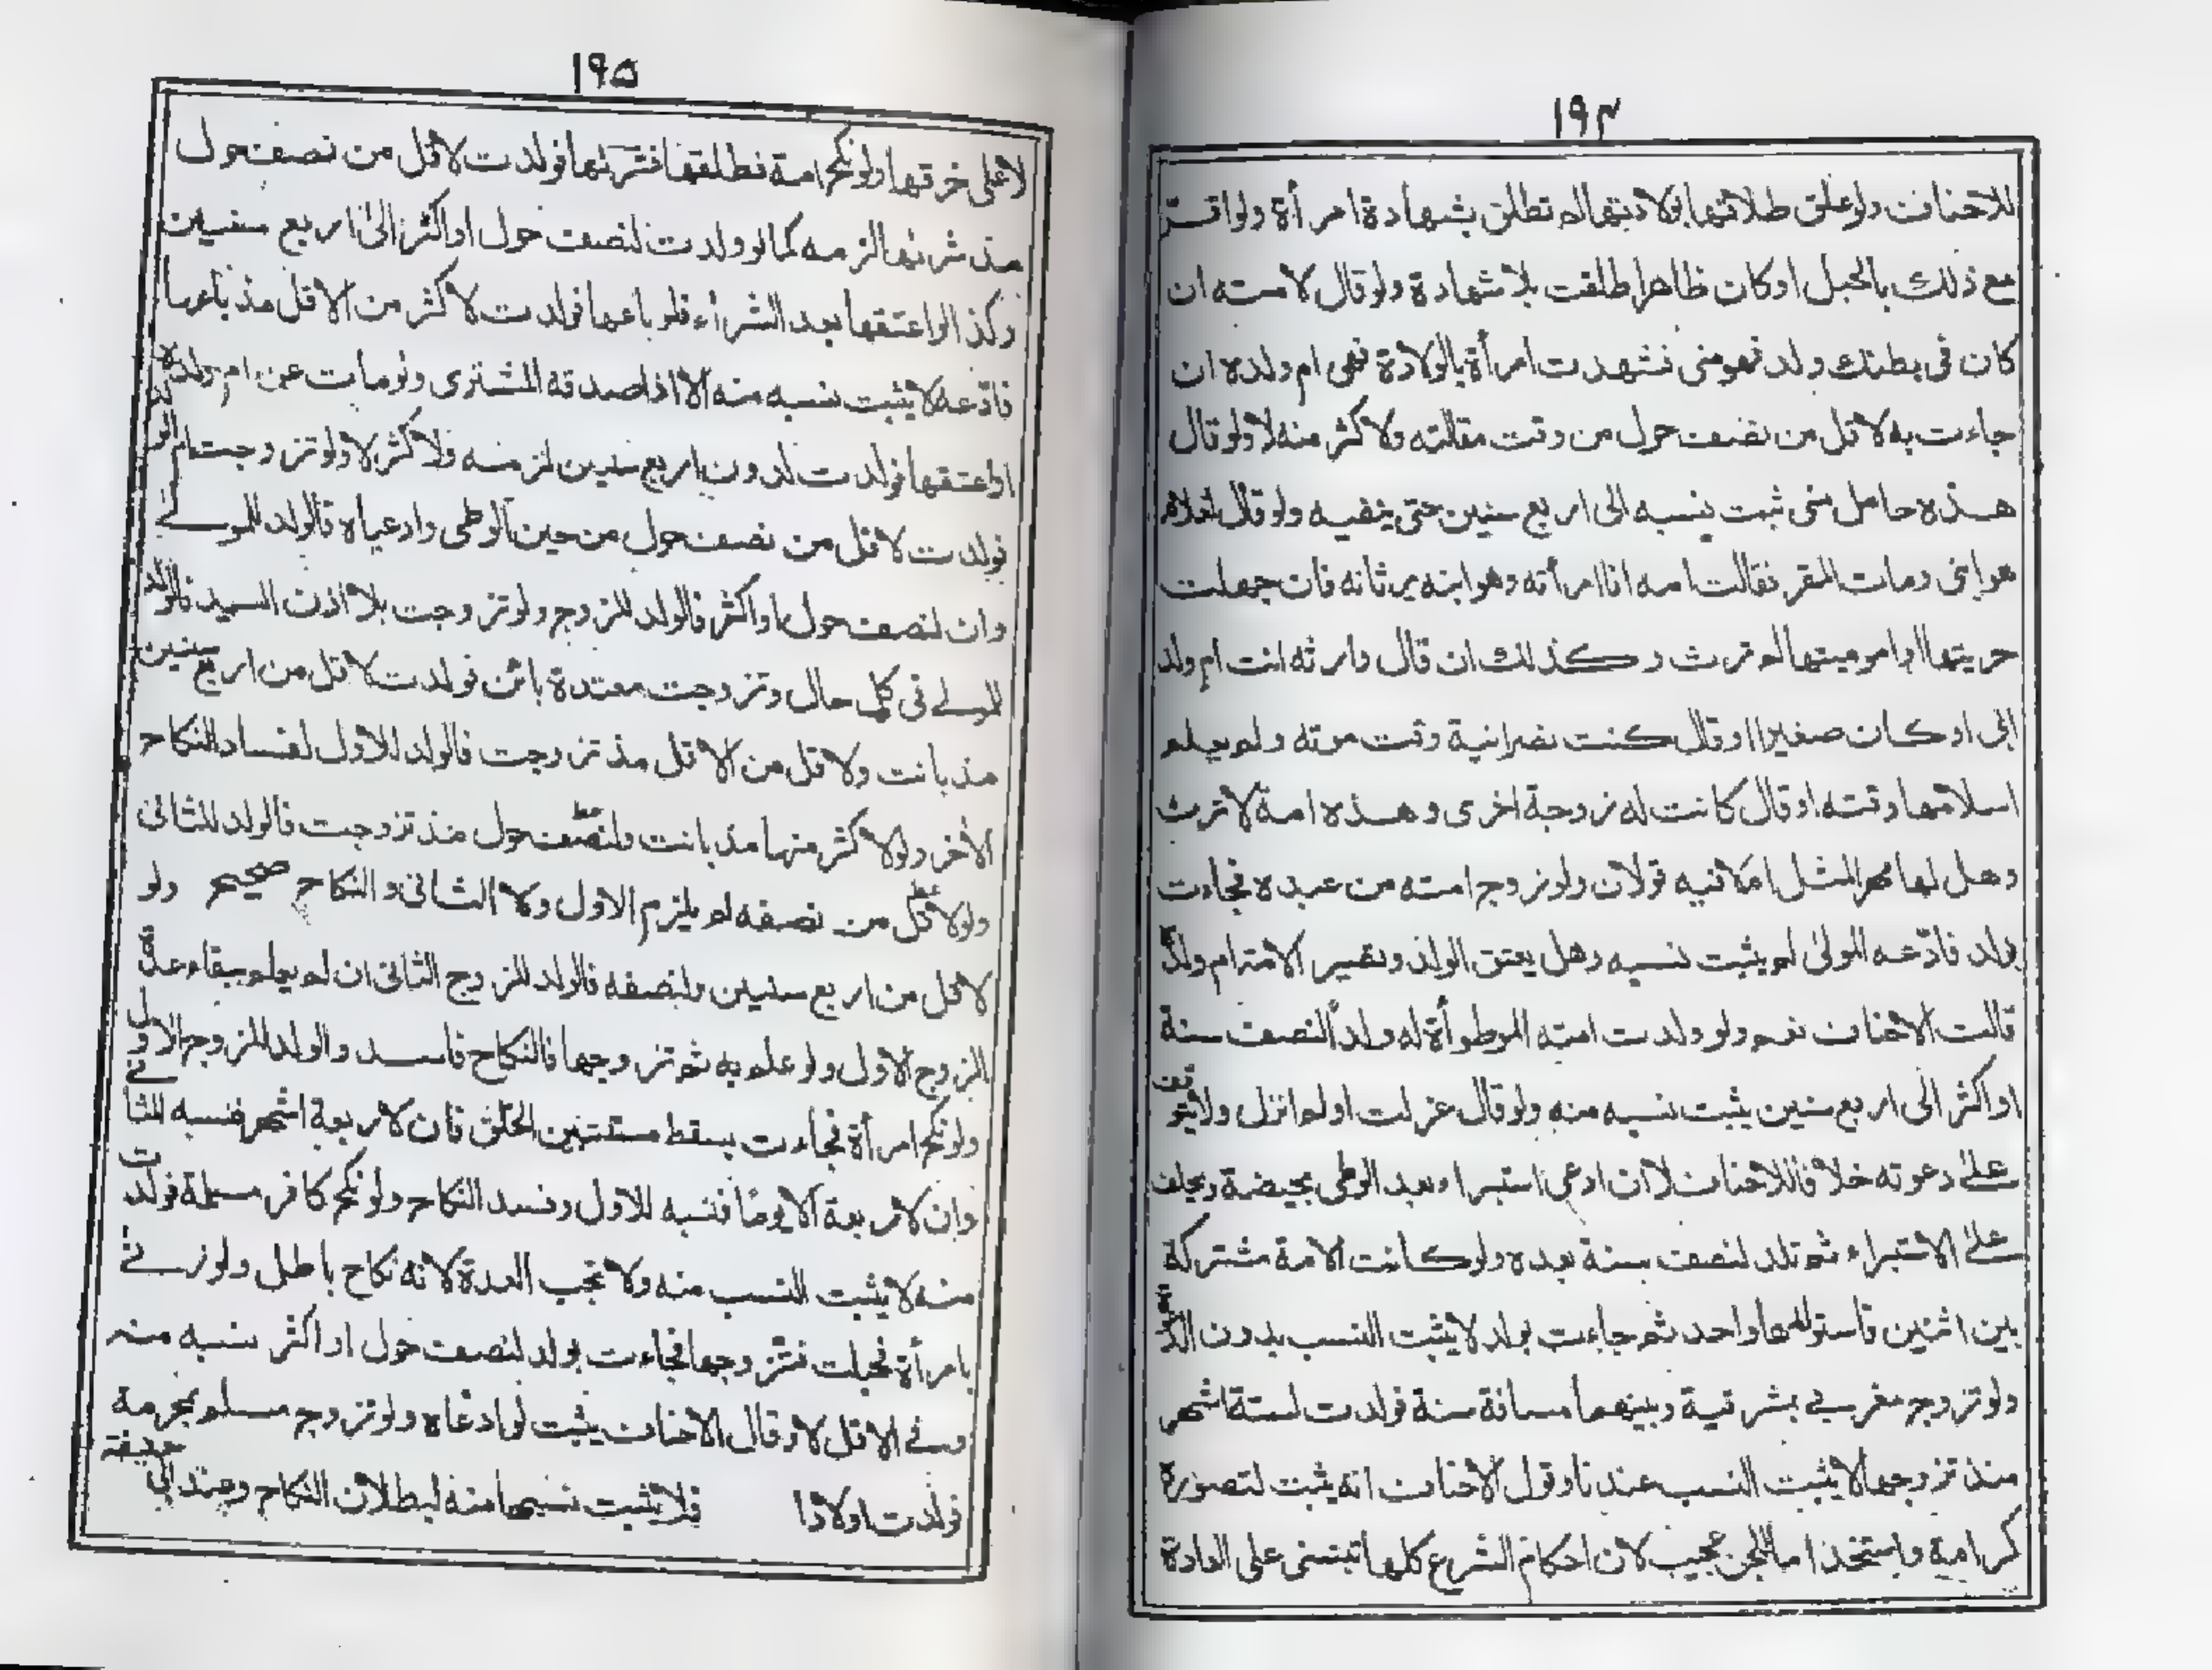 ١٩٤
للاحناف ولو علق طلاقها بولادتها لم تطلق بشهادة امرأة ولو اقر
مع ذلك بالحبل او كان ظاهرا طلقت بلا شهادة ولو قال لامته ان
كان فى بطنك ولد فهو منى فشهدت امرأة بالولادة فهى ام ولده ان
جاءت به لاقل من نصف حول من وقت مقالته ولاكثر منه لا ولو قال
هذه حامل منى ثبت نسبه الى اربع سنين حتى ينفيه ولو قال لغلام
هو ابنى ومات المقر فقالت امه انا امرأته وهو ابنه يرثانه فان جهلت
حريتها او امويتها لم ترث وكذلك ان قال وارثه انت ام ولد
ابى او كان صغيرا او قال كنت نصرانية وقت موته ولم يعلم
اسلامها وقته او قال كانت له زوجة اخرى وهذه امة لا ترث
وهل لها مهر المثل ام لا فيه قولان ولو زوج امته من عبده فجاءت
بولد فادّعه المولى لم يثبت نسبه وهل يعتق الولد وتصير الامة ام ولد
قالت الاحناف نعم ولو ولدت امته الموطوأة له ولدا لنصف سنة
او اكثر الى اربع سنين يثبت نسبه منه ولو قال عزلت او لم انزل ولا يتوقف
على دعوته خلافا للاحناف لا ان ادعى استبراء بعد الوطى بحيضة ويحلف
على الاستبراء ثم تلد لنصف سنة بعده ولو كانت الامة مشتركة
بين اثنين فاستولدها واحد ثم جاءت بولد لا يثبت النسب بدون
ولو تزوج مغربى بمشرقية وبينهما مسافة سنة فولدت لستة اشهر
منذ تزوجها لا يثبت النسب عندنا وقول الاحناف انه يثبت لتصوره
كرامة واستخذاما للجن عجيب لان احكام الشرع كلها تبتنى على العادة
١٩٥
لا على خرقها ولو نكح امة فطلقها فشرىها فولدت لاقل من نصف حول
مذ شرىها لزمه كما لو ولدت لنصف حول او اكثر الى اربع سنين
وكذا لو اعتقها بعد الشرأء فلو باعها فولدت لاكثر من الاقل مذ باعها
فادّعه لا يثبت نسبه منه الا اذا صدقه المشترى ولو مات عن ام ولده
او اعتقها فولدت لدون اربع سنين لزمه ولاكثر لا ولو تزوجت ام الولد
فولدت لاقل من نصف حول من حين الوطى وادعياه فالولد للمولى
وان لنصف حول او اكثر فالولد للزوج ولو تزوجت بلا اذن السيد فالولد
للمولى فى كل حال وتزوجت معتدة بائن فولدت لاقل من اربع سنين
مذ بانت ولاقل من الاقل مذ تزوجت فالولد للاول لفساد النكاح
الأخر ولو لاكثر منها مذ بانت ولنصف حول منذ تزوجت فالولد للثانى
ولو لاقل من نصفه لم يلزم الاول ولا الثانى والنكاح صحيح ولو
لاقل من اربع سنين ولنصفه فالولد للزوج الثانى ان لم يعلم ببقاء عدة
الزوج الاول ولو علم به ثم تزوجها فالنكاح فاسد والولد للزوج الاول
ولو نكح امرأة فجاءت بسقط مستبين الخلق فان لاربعة اشهر فنسبه للثانى
وان لاربعة الا يوما فنسبه للاول وفسد النكاح ولو نكح كافر مسلمة فولدت
منه لا يثبت النسب منه ولا تجب العدة لانه نكاح باطل ولو زنى
بامرأة فحبلت فتزوجها فجاءت بولد لنصف حول او اكثر نسبه منه
وفى الاقل لا وقال الاحناف يثبت لو ادعاه ولو تزوج مسلم بمحرمة
فولدت اولادا فلا يثبت نسبها منه لبطلان النكاح وعند ابى حنيفة